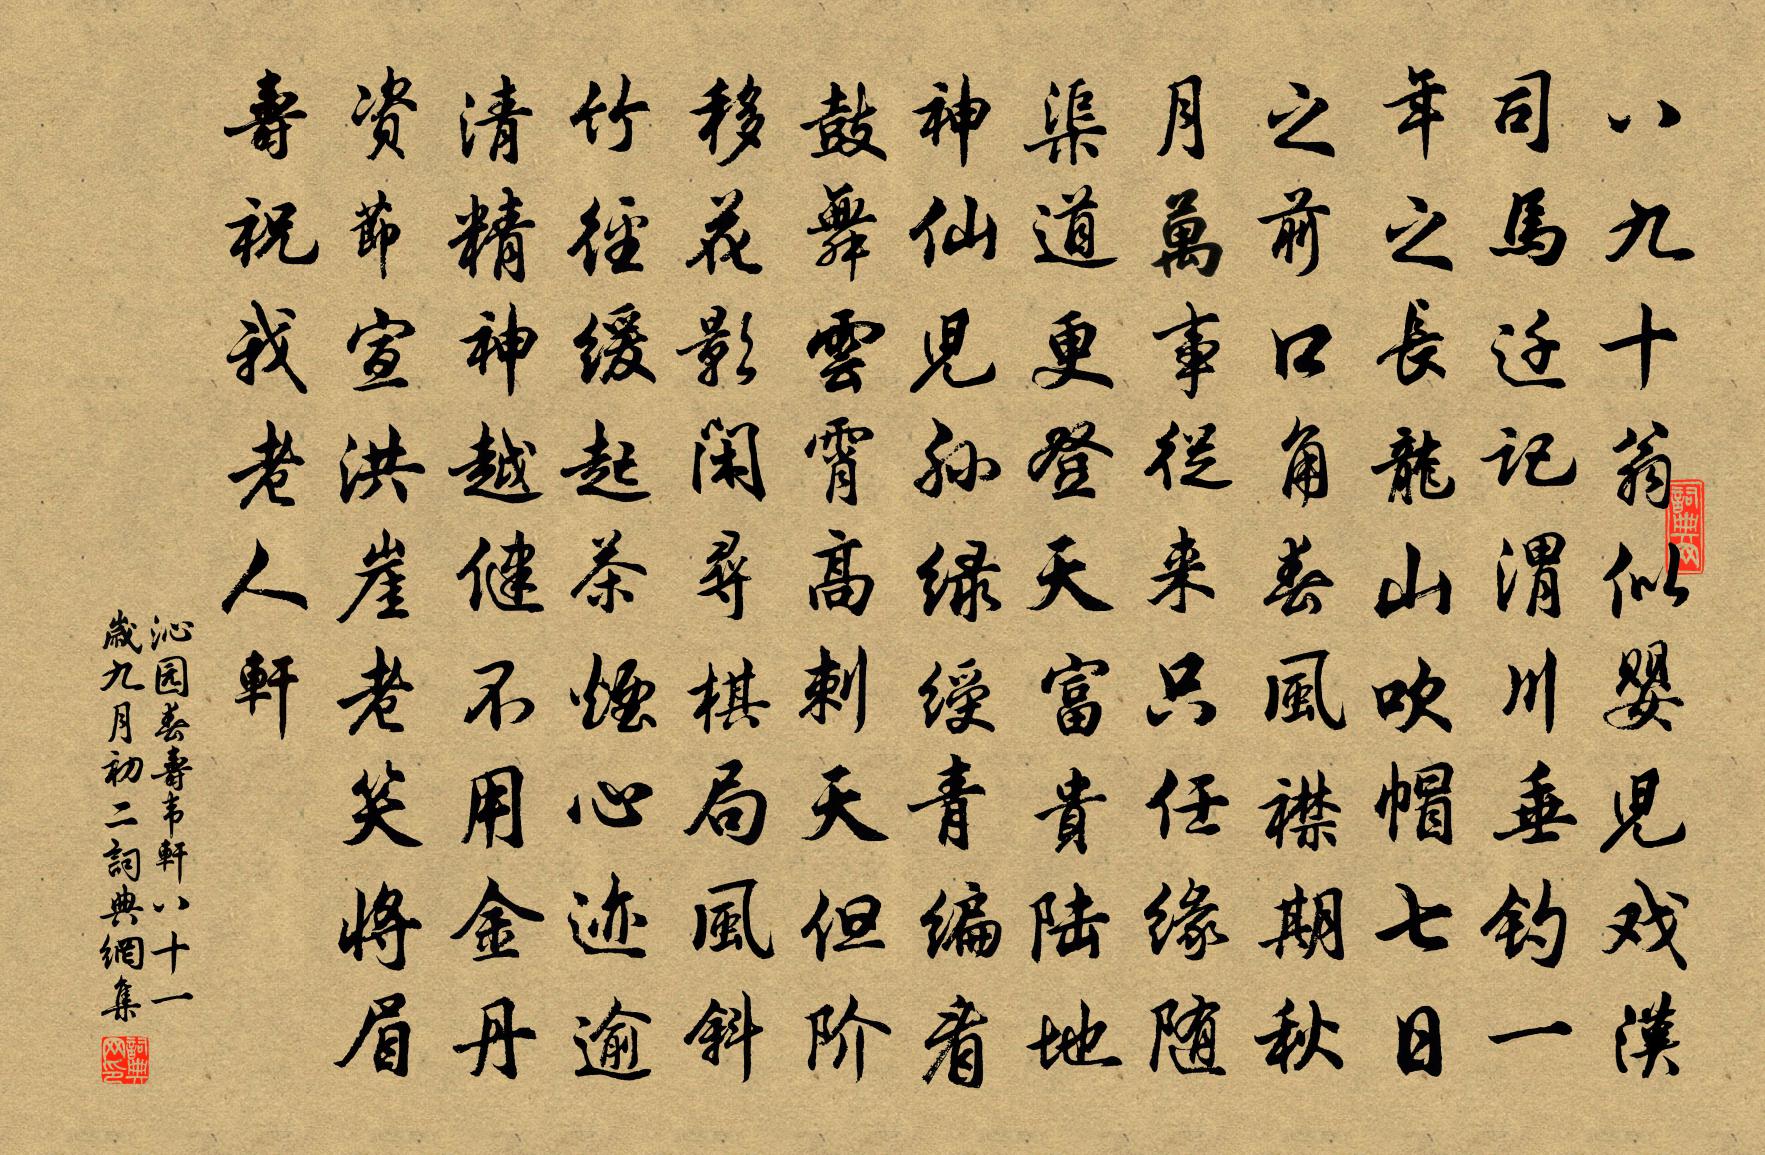 八九十翁似嬰児戏漢
司馬迁记渭川垂钓一
年之長龍山吹帽七日
之前口角春風襟期秋
月萬事從来只任缘随
渠道更登天富貴陆地
神仙児孙绿绶青编看
鼓舞雲霄高刺天但阶
移花影闲尋棋局風斜
竹径缓起茶烟心迹逾
清精神越健不用金丹
资节宣洪崖老笑將眉
壽祝我老人軒
沁园春壽韦軒八十一
歲九月初二詞典網集
詞典网
詞典网印